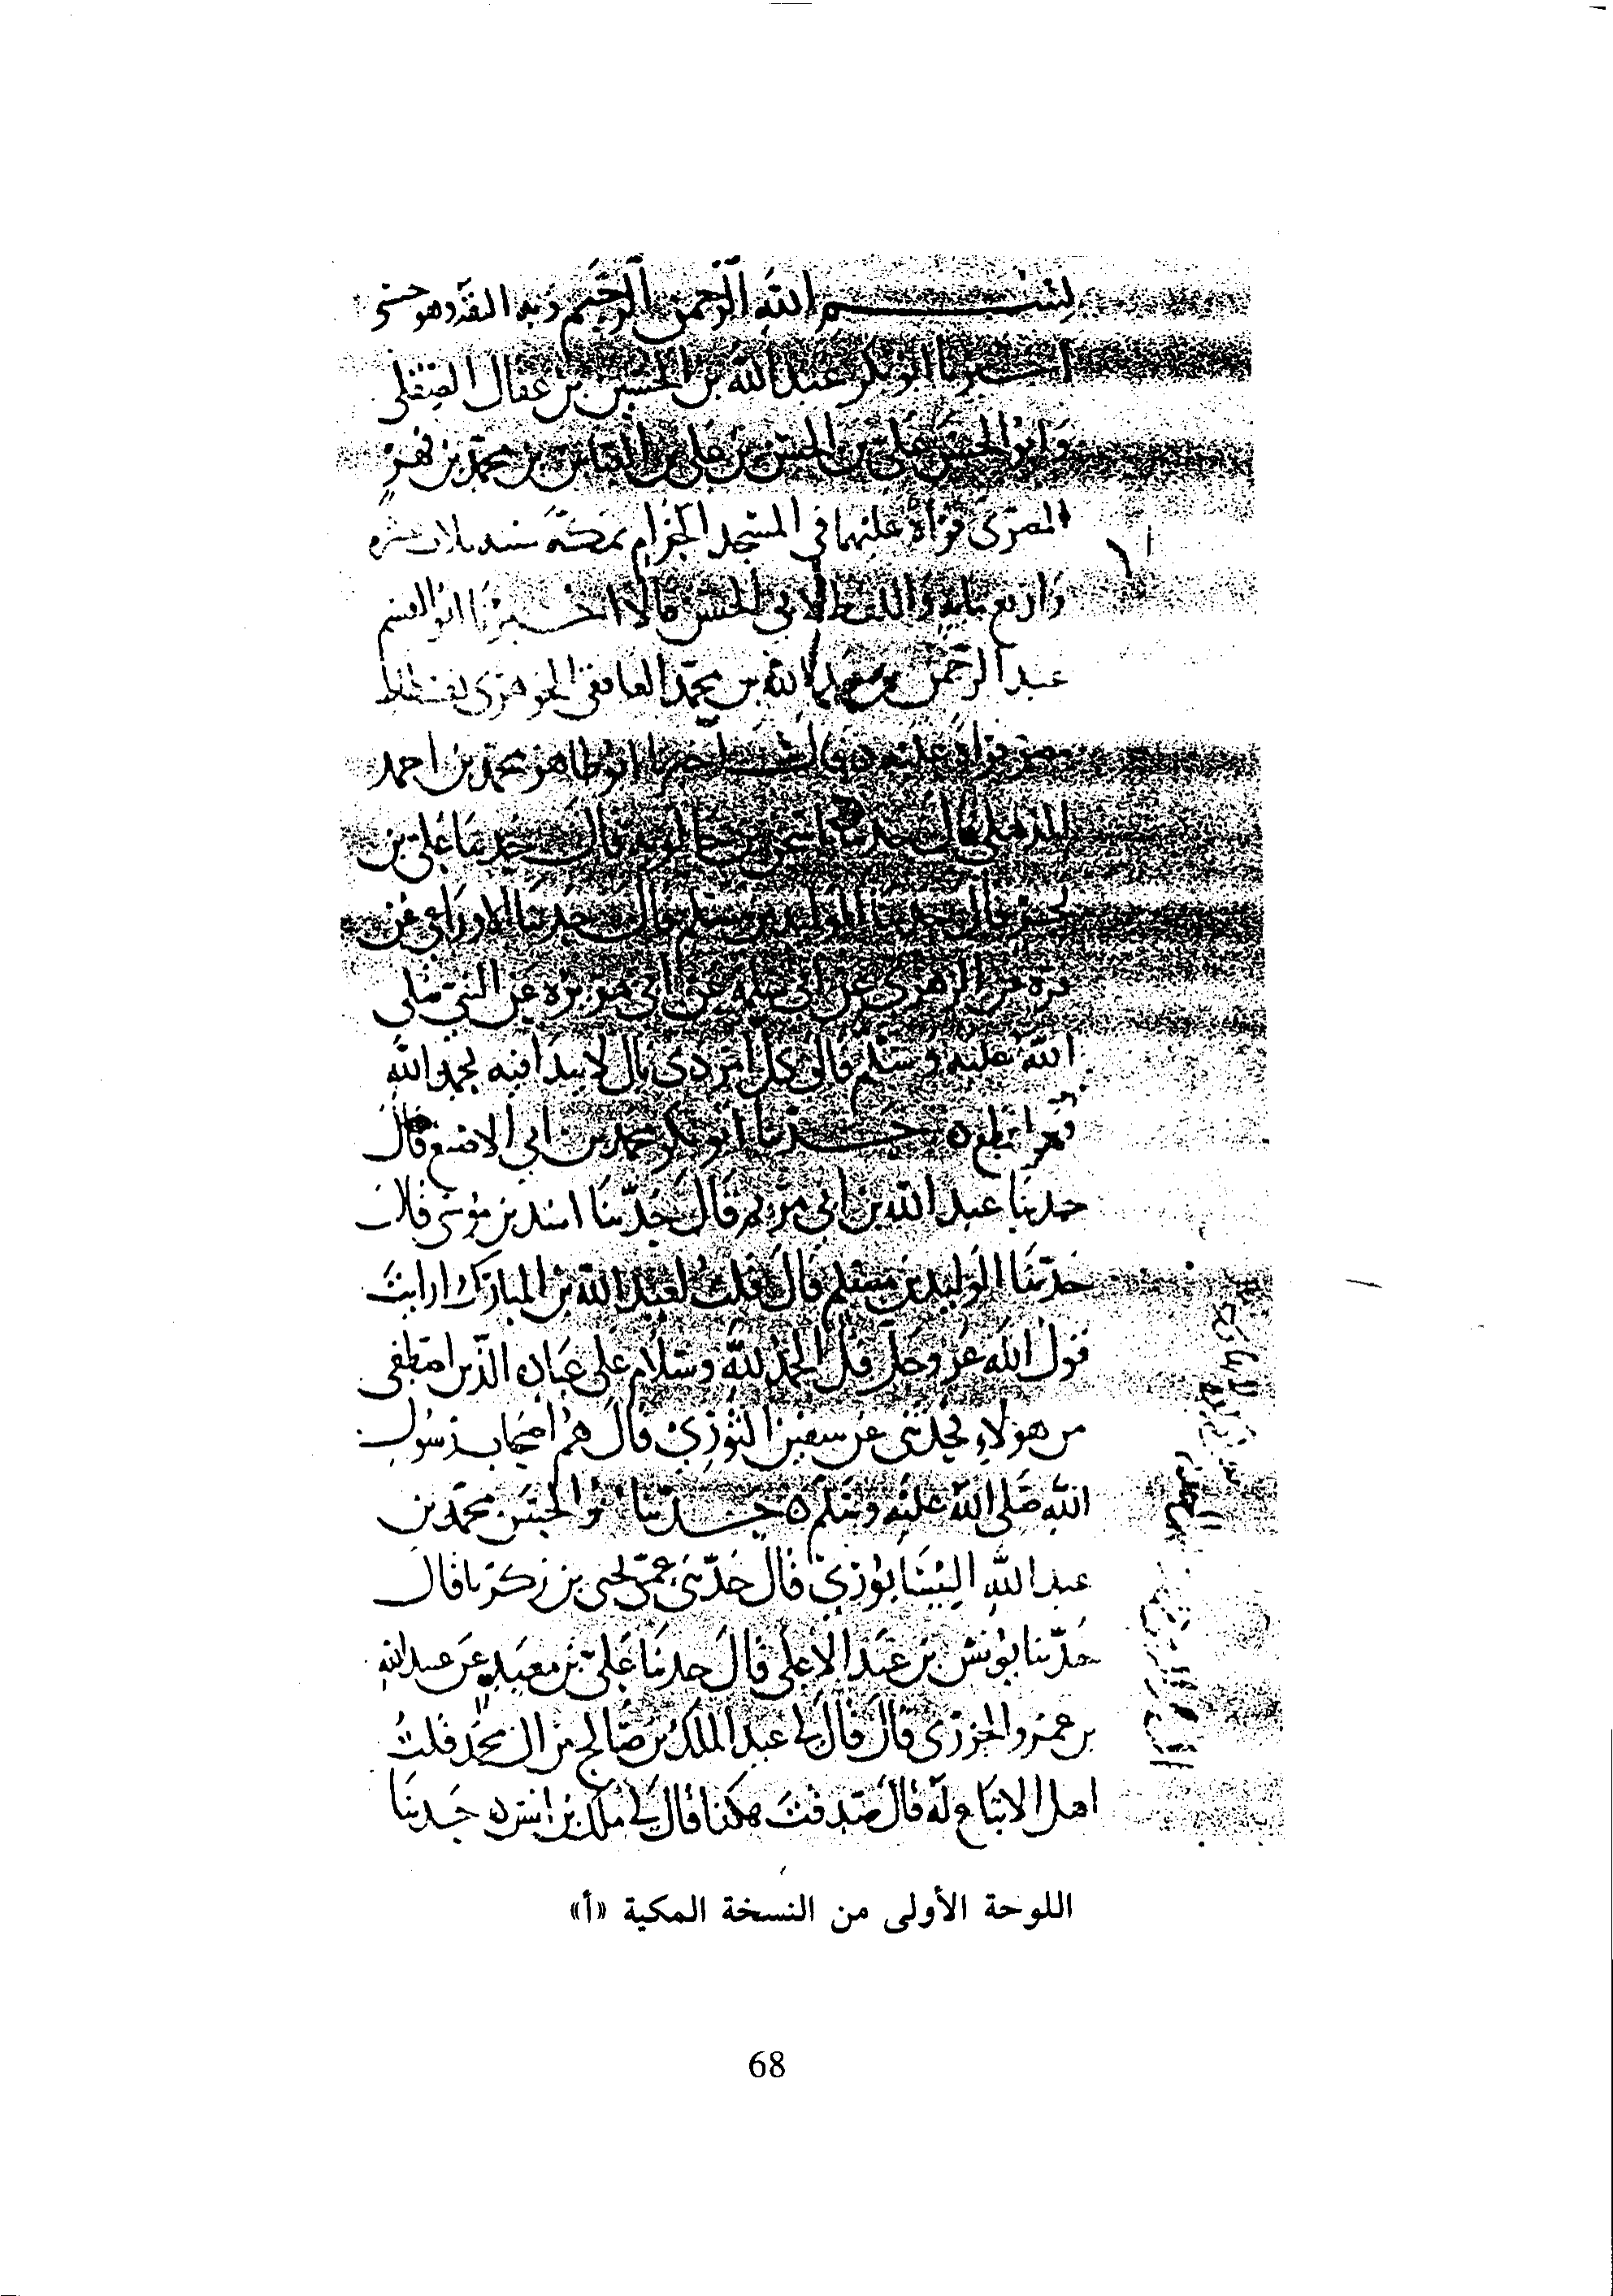 بسم الله الرحمن الرحيم وبه الثقة وهو حسبي
اخبرنا ابو بكر عبد الله بن الحسين بن عقال الصقلي
وابو الحسن علي بن الحسن بن علي بن العباس بن محمد بن فهر
المصري قراة عليهما في المسجد الحرام بمكة سنة ثلاث عشرة
واربع مائة واللفظ لابي الحسن قالا اخبرنا ابو القسم
عبد الرحمن بن عبد الله بن محمد الغافقي الجوهري بفسطاط
مصر قراة عليه قال اخبرنا ابو طاهر محمد بن احمد
الذهلي قال حدثنا قال حدثنا علي بن
قال حدثنا الوليد بن مسلم قال حدثنا الاوزاعي عن
قرة عن الزهري عن ابي سلمة عن ابي هريرة عن النبي صلى
الله عليه وسلم قال كل امر ذي بال لا يبدا فيه بحمد الله
فهو اقطع حدثنا ابو بكر محمد بن ابي الاصبع قال
حدثنا عبد الله بن ابي مريم قال حدثنا اسد بن موسى قال
حدثنا الوليد بن مسلم قال قلت لعبد الله بن المبارك ارايت
قول الله عز وجل قل الحمد لله وسلام على عباده الذين اصطفى
من هولاء فحدثني عن سفين الثوري قال هم اصحاب رسول
الله صلى الله عليه وسلم حدثنا ابو الحسن محمد بن
عبد الله النيسابوري قال حدثني عمي يحيى بن زكريا قال
حدثنا يونس بن عبد الاعلى قال حدثنا علي بن معبد عن عبيد الله
بن عمرو الجزري قال قال لي عبد الملك بن صالح من ال محمد قلت
اهل الاتباع له قال صدقت هكذا قال لي ملك بن انس حدثنا
اللوحة الأولى من النسخة المكية «أ»
68